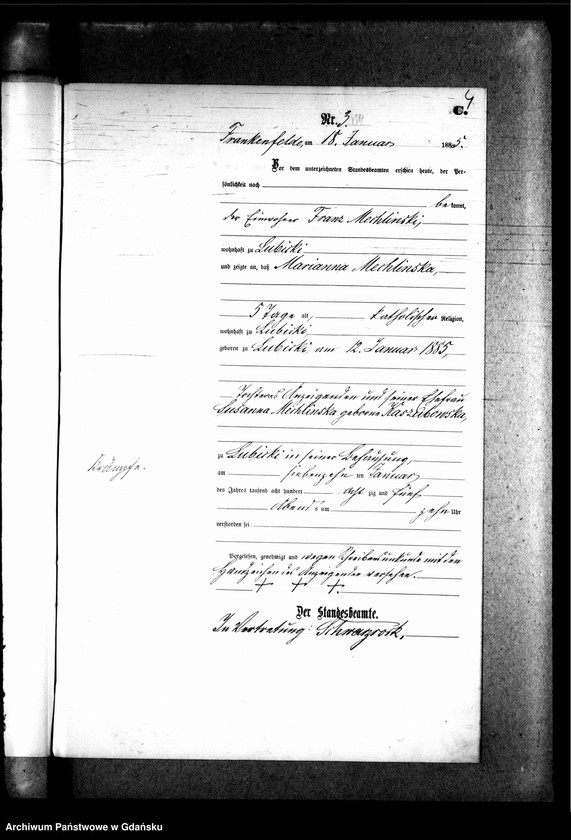 4
C.
Nr. 3.
Frankenfelde, am 18. Januar 1885.
Vor dem unterzeichneten Standesbeamten erschien heute, der Per-
sönlichkeit nach
bekannt,
der Einwohner Franz Mechlinski,
wohnhaft zu Lubicki
und zeigte an, daß Marianna Mechlinska,
5 Tage alt, katholischer Religion,
wohnhaft zu Lubicki,
geboren zu Lubicki am 12. Januar 1885,
Tochter des Anzeigenden und seiner Ehefrau
Susanna Mechlinska geborene Kaszubowska,
zu Lubicki in seiner Behausung,
am siebenzehnten Januar
des Jahres tausend acht hundert acht zig und fünf
Abends um zehn Uhr
verstorben sei
Krämpfe.
Vorgelesen, genehmigt und wegen Schreibensunkunde mit den
Handzeichen des Anzeigenden versehen.
+ + +
Der Standesbeamte.
In Vertretung: Schwarzrock.
Archiwum Państwowe w Gdańsku